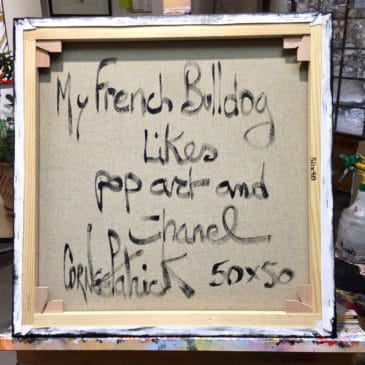 My French Bulldog
Likes
pop art and
Chanel
CORNEE Patrick 50x50
50x50